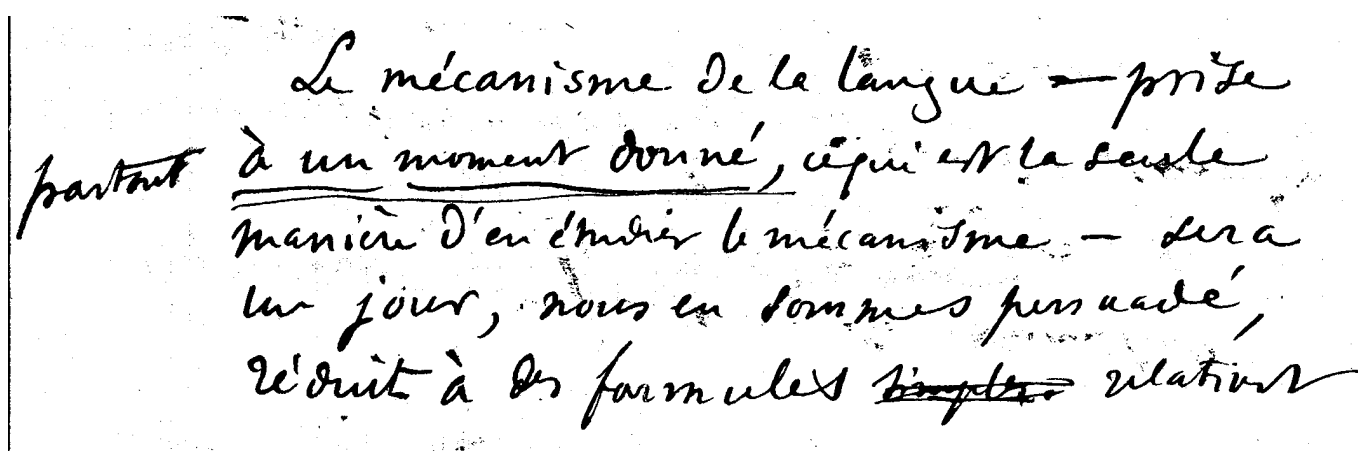 Le mécanisme de la langue — prise
partout à un moment donné, ce qui est la seule
manière d'en étudier le mécanisme — sera
un jour, nous en sommes persuadé,
réduit à des formules simples relativt